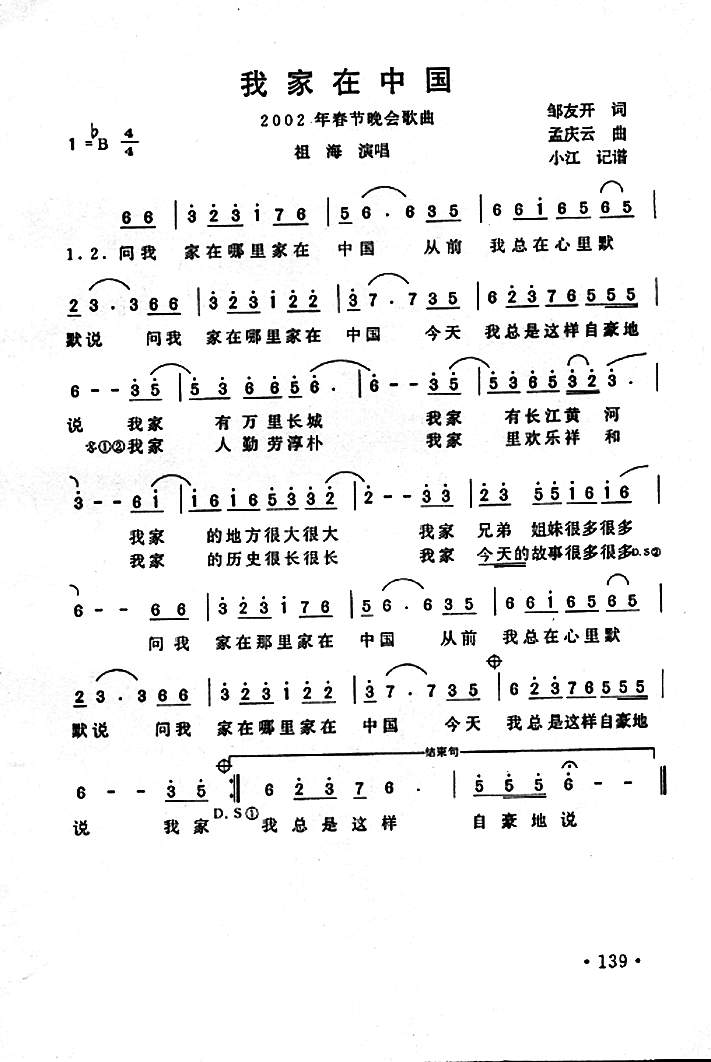 我家在中国
2002年春节晚会歌曲
祖海 演唱
邹友开 词
孟庆云 曲
小江 记谱
1=♭B 4/4
6 6 | 3 2 3 i 7 6 | 5 6 . 6 3 5 | 6 6 i 6 5 6 5 |
1.2.问我 家在哪里家在 中国 从前 我总在心里默
2 3 . 3 6 6 | 3 2 3 i 2 2 | 3 7 . 7 3 5 | 6 2 3 7 6 5 5 5 |
默说 问我 家在哪里家在 中国 今天 我总是这样自豪地
6 - - 3 5 | 5 3 6 6 5 6 . | 6 - - 3 5 | 5 3 6 5 3 2 3 . |
说 我家 有万里长城 我家 有长江黄河
①②我家 人勤劳淳朴 我家 里欢乐祥和
3 - - 6 i | i 6 i 6 5 3 3 2 | 2 - - 3 3 | 2 3 5 5 i 6 i 6 |
我家 的地方很大很大 我家 兄弟 姐妹很多很多
我家 的历史很长很长 我家 今天的故事很多很多D.S②
6 - - 6 6 | 3 2 3 i 7 6 | 5 6 . 6 3 5 | 6 6 i 6 5 6 5 |
问我 家在那里家在 中国 从前 我总在心里默
2 3 . 3 6 6 | 3 2 3 i 2 2 | 3 7 . 7 3 5 | 6 2 3 7 6 5 5 5 |
默说 问我 家在哪里家在 中国 今天 我总是这样自豪地
结束句
6 - - 3 5 :‖ 6 2 3 7 6 . | 5 5 5 6 - - ‖
D.S①
说 我家 我总是这样 自豪地说
·139·